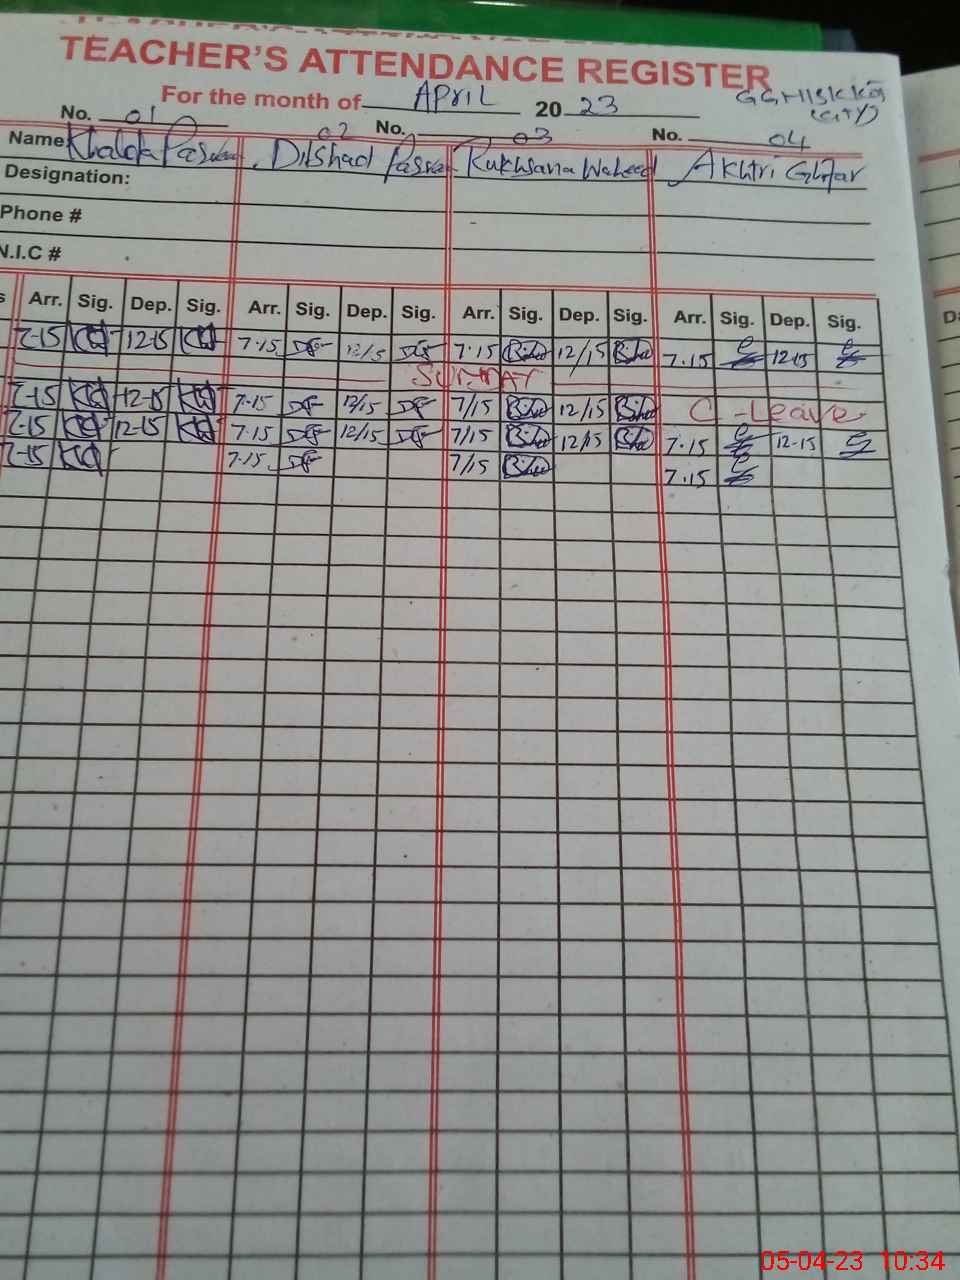 TEACHER'S ATTENDANCE REGISTER
For the month of APRIL 2023
(CITY)
No. 01 02 No. 03 No. 04
Name: Khalda Dilshad Rukhsana Waheed Akhtri
Designation:
Phone #
N.I.C #
Arr. Sig. Dep. Sig. Arr. Sig. Dep. Sig. Arr. Sig. Dep. Sig. Arr. Sig. Dep. Sig.
7-15 12-15 7.15 12/15 7.15 12/15 7.15 12-15
SUNDAY
7-15 12-15 7.15 12/15 7/15 12/15 C-Leave
7-15 12-15 7.15 12/15 7/15 12/15 7.15 12-15
7-15 7.15 7/15 7.15
05-04-23 10:34